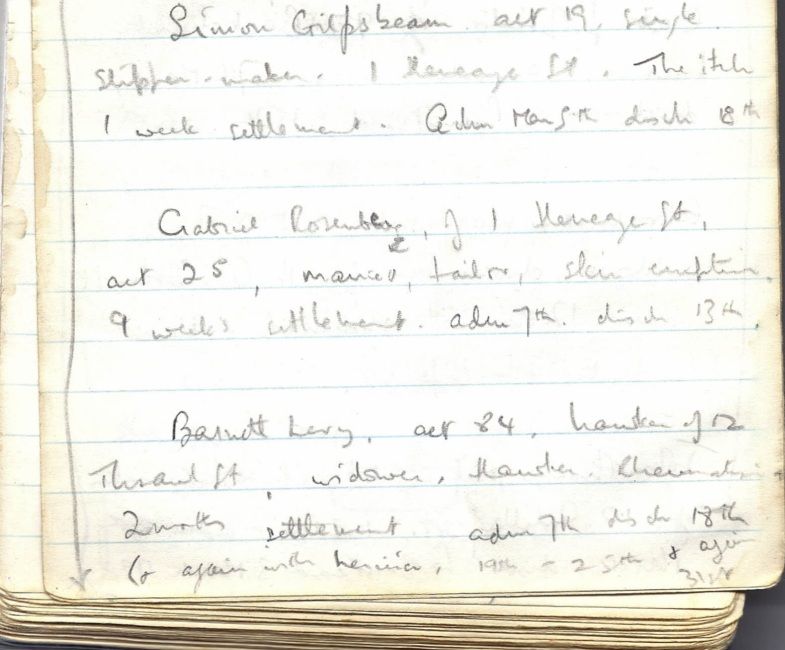 Simon Gilpsbeam aet 19, single
slipper-maker. 1 Heneage St. The itch
1 week settlement. Adm Mar 5th disch 18th
Gabriel Rosenberg, of 1 Heneage St,
aet 25, married, tailor, skin eruption.
9 weeks settlement. adm 7th. disch 13th.
Barnett Levy, aet 84, hawker of 12
Thrawl St, widower, Hawker. Rheumatism
2 months settlement adm 7th disch 18th
(& again with hernia, 19th - 25th & again
31st